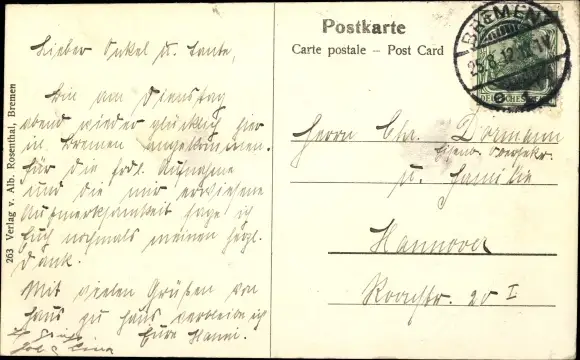 Postkarte
Carte postale – Post Card
BREMEN
25.8.12.
DEUTSCHES
Lieber Onkel u. Tante,
Bin am Dienstag
abend wieder glücklich hier
in Bremen angekommen.
Für die frdl. Aufnahme
und die mir erwiesene
Aufmerksamkeit sage ich
Euch nochmals meinen herzl.
Dank.
Mit vielen Grüßen von
Haus zu Haus verbleibe ich
Eure Hanni.
Herrn Chr. Dormann
Eisenb. Obersekr.
u. Familie
Hannover
20 I
263 Verlag v. Alb. Rosenthal, Bremen